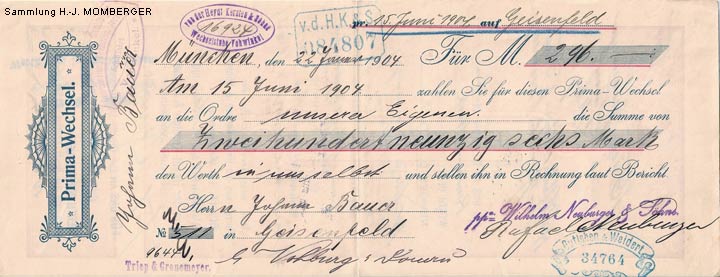 Sammlung H.-J. MOMBERGER
pr. 15 Juni 1904 auf Geisenfeld
von der Heydt Kersten & Söhne
16924
Wechselstube Vohwinkel
v.d.H.K.&S.
084807
München, den 22 Januar 1904. Für M. 296.—
Am 15 Juni 1904 zahlen Sie für diesen Prima-Wechsel
an die Ordre unserer Eigenen die Summe von
Zweihundertneunzig sechs Mark
den Werth in uns selbst und stellen ihn in Rechnung laut Bericht.
Herrn Johann Bauer
№ 511 in Geisenfeld
9644
Vohburg a/Donau
ppa Wilhelm Neuburger & Söhne
Rafael Neuburger
34764
Triep & Gronemeyer.
Prima-Wechsel.
Johann Bauer